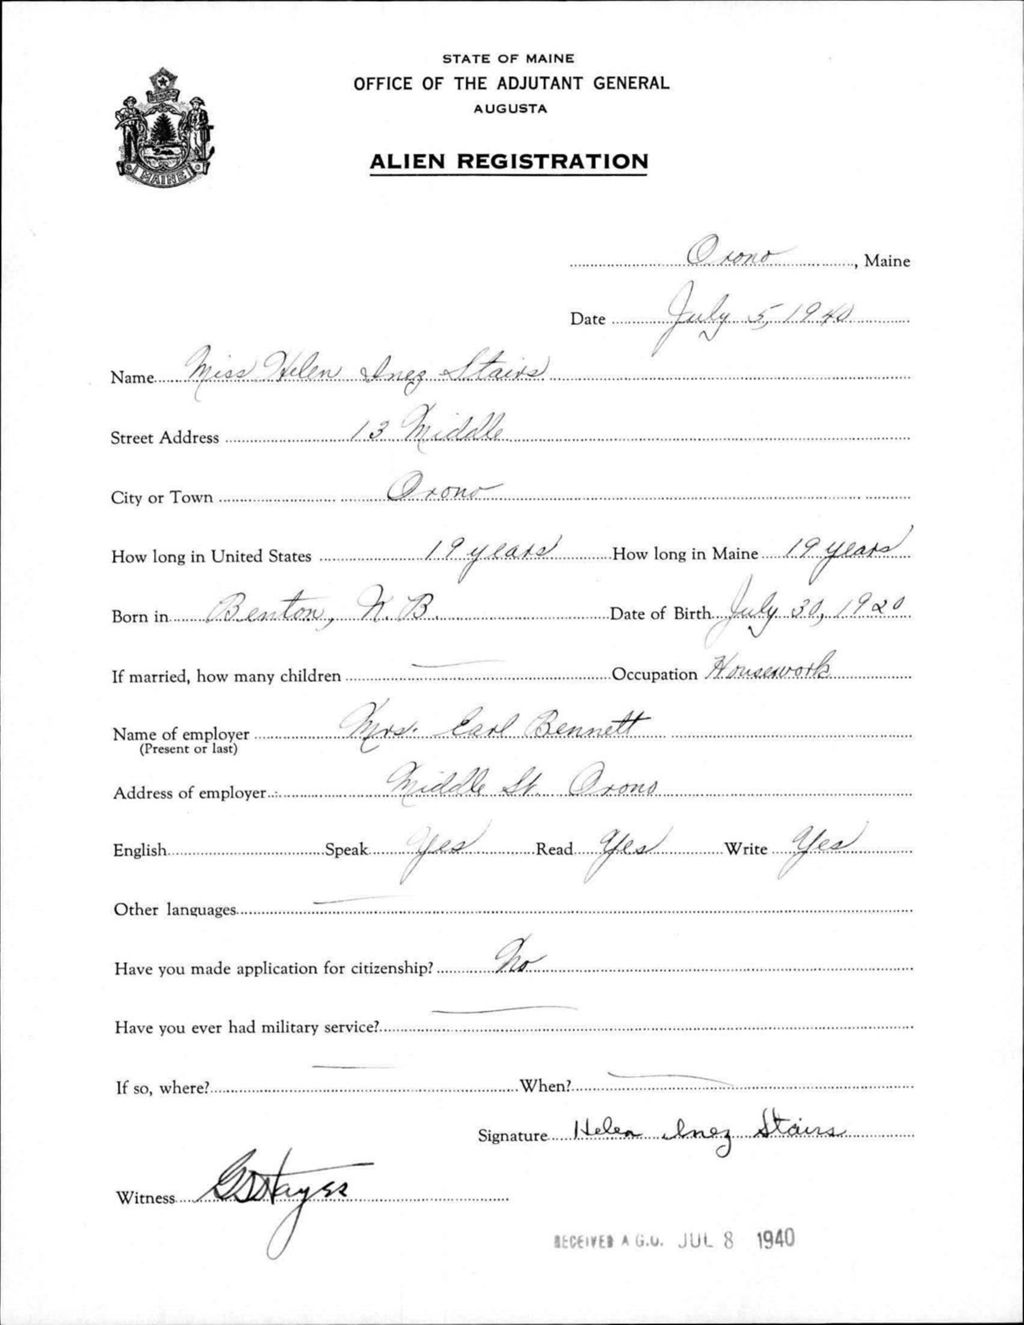 STATE OF MAINE
OFFICE OF THE ADJUTANT GENERAL
AUGUSTA
ALIEN REGISTRATION
MAINE
Orono, Maine
Date July 5, 1940
Name Miss Helen Inez Stairs
Street Address 13 Middle
City or Town Orono
How long in United States 19 years How long in Maine 19 years
Born in Benton, N.B. Date of Birth July 30, 1920
If married, how many children — Occupation Housework
Name of employer Mrs. Earl Bennett
(Present or last)
Address of employer Middle St. Orono
English Speak Yes Read Yes Write Yes
Other languages —
Have you made application for citizenship? No
Have you ever had military service? —
If so, where? — When? —
Signature Helen Inez Stairs
Witness G D Hayes
RECEIVED A.G.O. JUL 8 1940